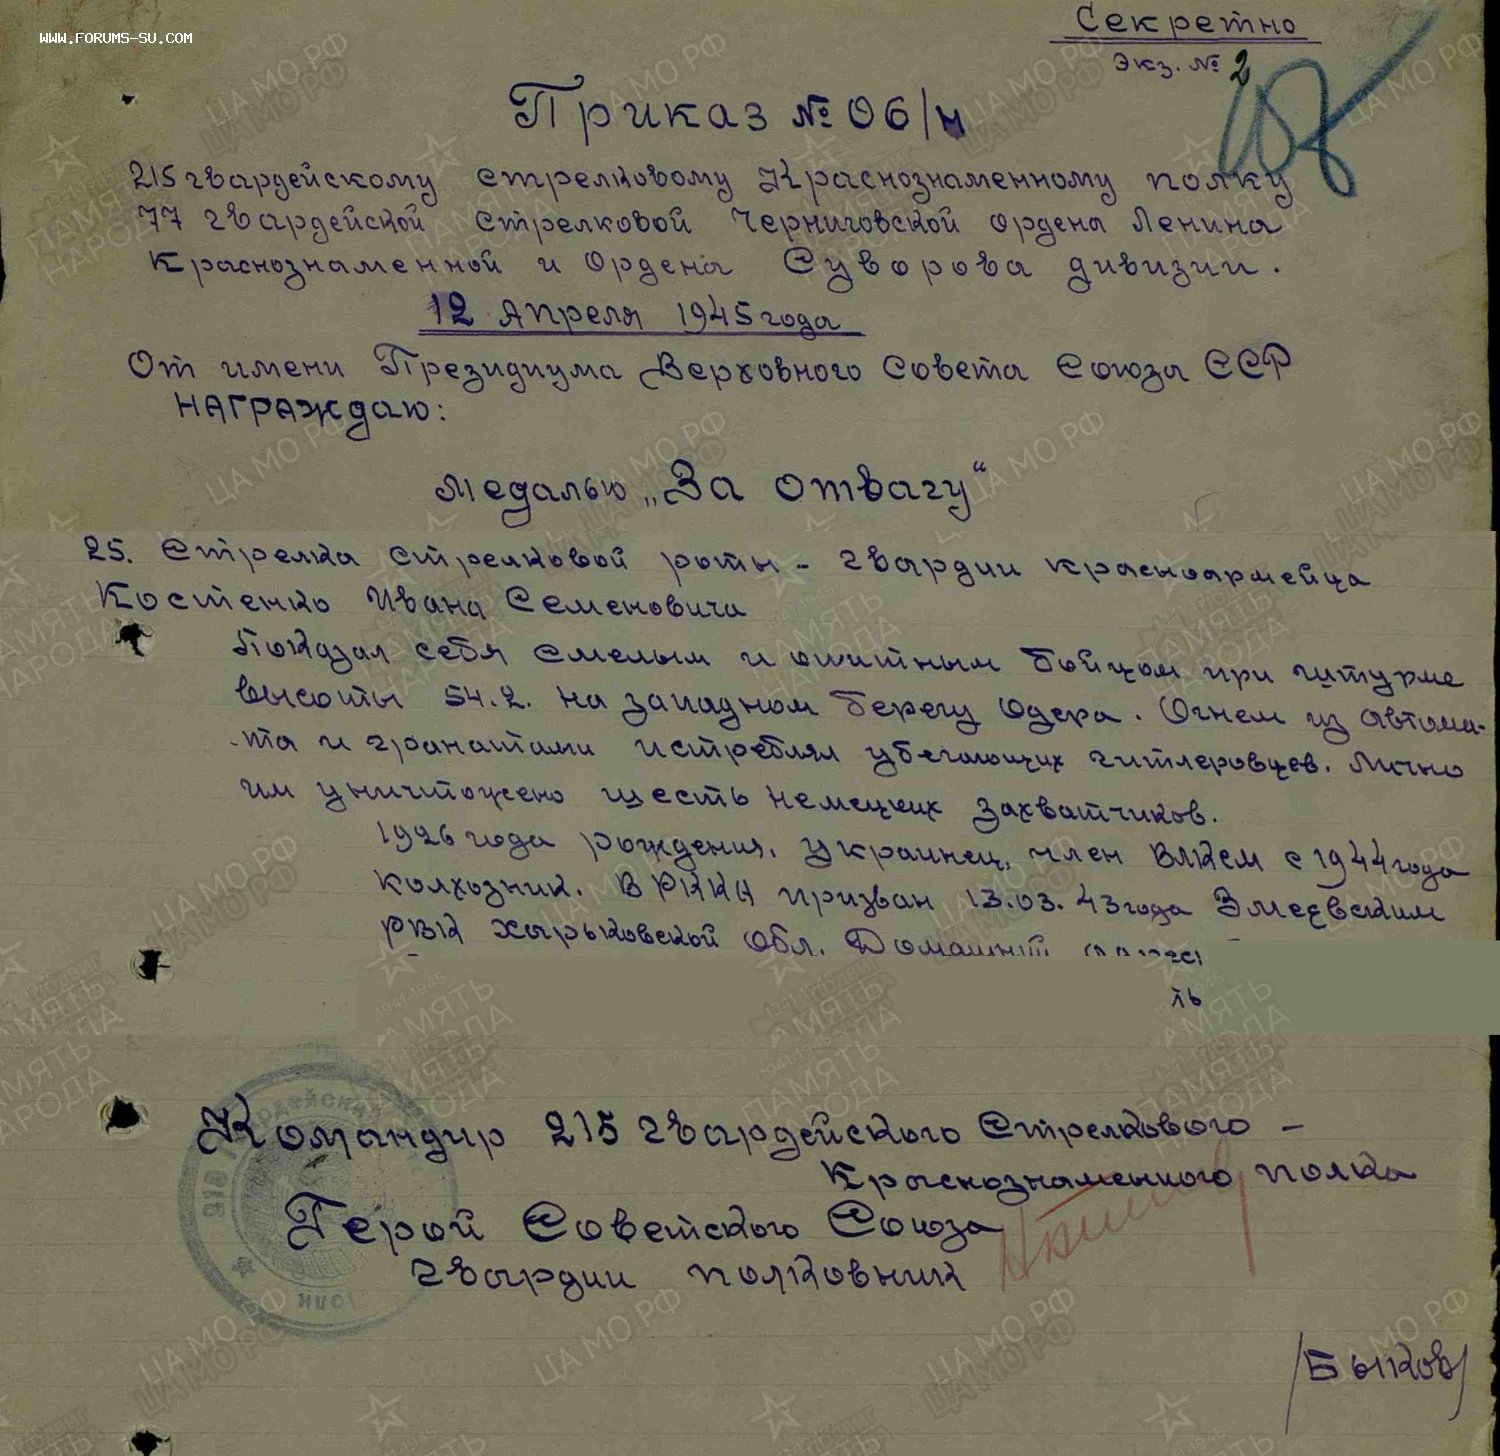 WWW.FORUMS-SU.COM
Секретно
Экз. № 2
Приказ № 06/н
215 гвардейскому стрелковому Краснознаменному полку
77 гвардейской стрелковой Черниговской ордена Ленина
Краснознаменной и ордена Суворова дивизии.
12 апреля 1945 года
От имени Президиума Верховного Совета Союза ССР
НАГРАЖДАЮ:
Медалью „За отвагу“
25. Стрелка стрелковой роты - гвардии красноармейца
Костенко Ивана Семеновича
Показал себя смелым и опытным бойцом при штурме
высоты 54.2. на западном берегу Одера. Огнем из автома-
-та и гранатами истреблял убегающих гитлеровцев. Лично
им уничтожено шесть немецких захватчиков.
1926 года рождения, украинец, член ВЛКСМ с 1944 года
колхозник. В РККА призван 13.03.43 года Змеевским
РВК Харьковской обл. Домашний адрес:
Командир 215 гвардейского Стрелкового -
Краснознаменного полка
Герой Советского Союза
гвардии полковник
/Быков/
ЦА МО РФ
ПАМЯТЬ
НАРОДА
1941-1945